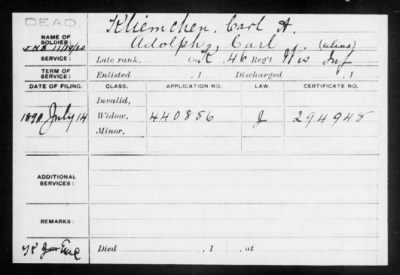 DEAD.
NAME OF SOLDIER: Kliemchen, Carl A.
Adolph, Carl (alias)
SERVICE: Late rank, Co K, 46 Reg't Wis Inf
TERM OF SERVICE: Enlisted , 1 Discharged , 1
DATE OF FILING. CLASS. APPLICATION NO. LAW. CERTIFICATE NO.
Invalid,
1890 July 14 Widow, 440856 J 294948
Minor,
ADDITIONAL SERVICES:
REMARKS:
Died , 1 , at